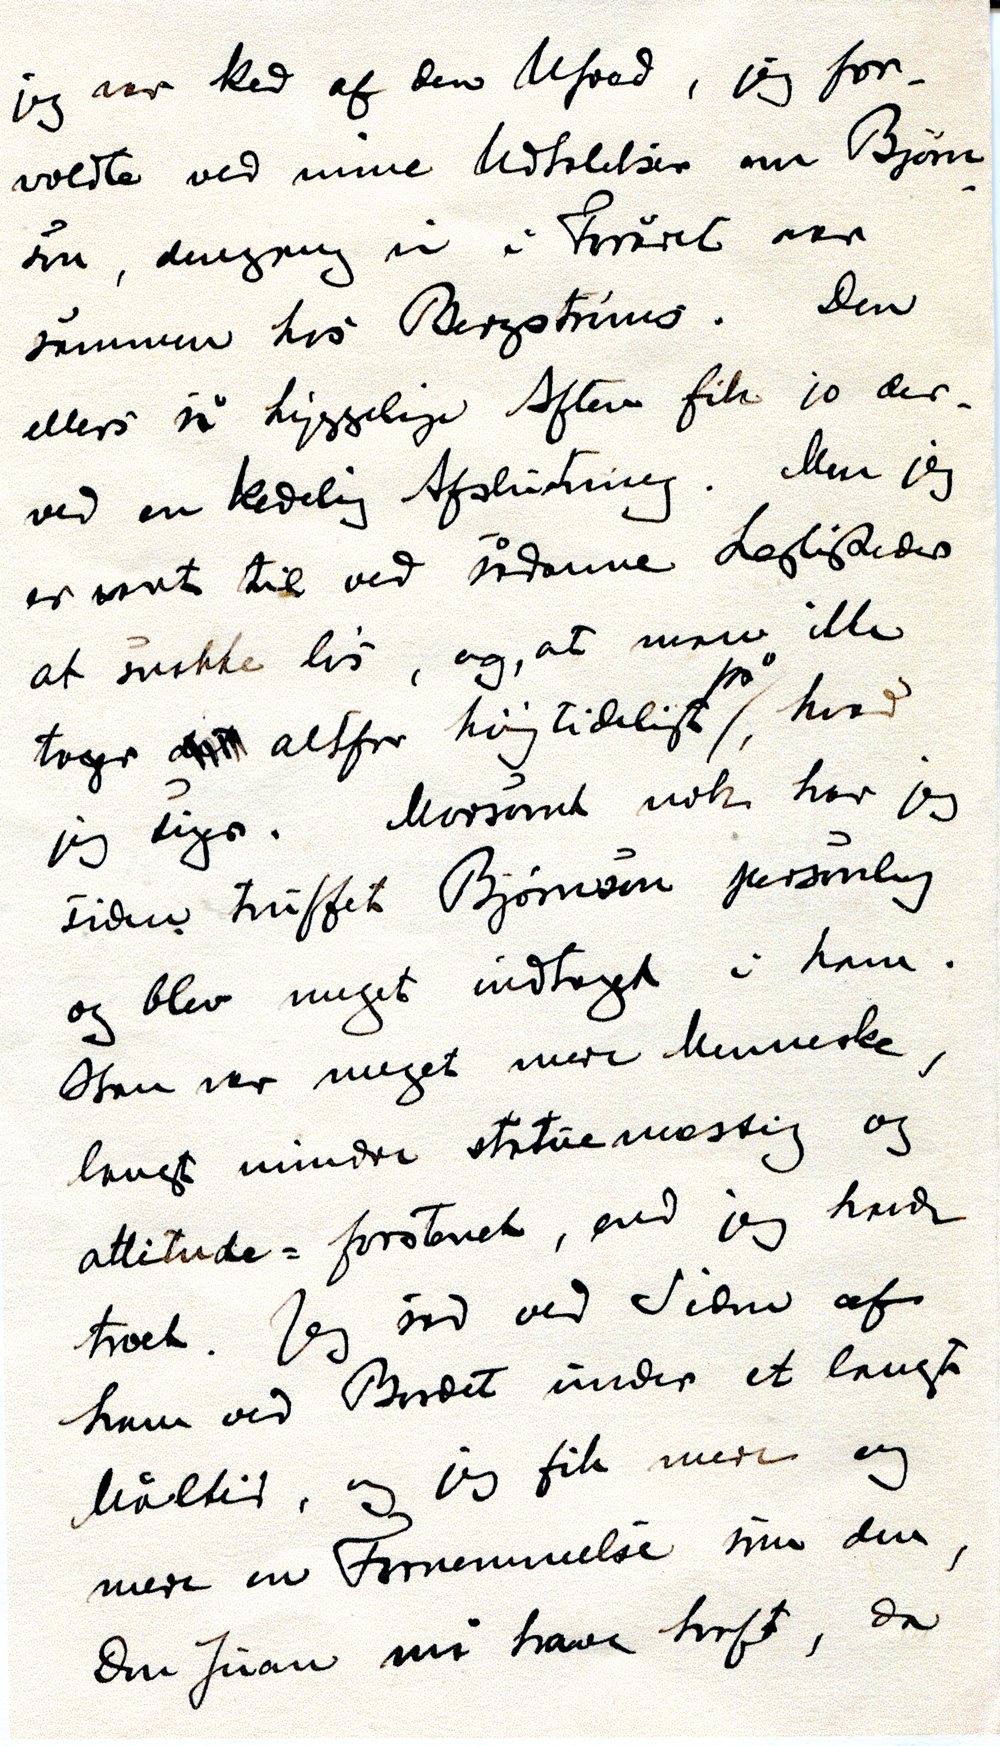 jeg var ked af den Ufred, jeg for-
voldte ved mine Udtalelser om Björn-
sön, dengang vi i Foråret var
sammen hos Bergströms. Den
ellers så hyggelige Aften fik jo der-
ved en kedelig Afslutning. Men jeg
er vant til ved sådanne Lejligheder
at snakke løs, og, at man ikke
tager altfor højtideligt på, hvad
jeg siger. Morsomt nok har jeg
siden truffet Bjørnson personlig
og blev meget indtaget i ham.
Han var meget mere Menneske,
langt mindre statuemæssig og
attitude-forstenet, end jeg havde
troet. Jeg sad ved Siden af
ham ved Bordet under et langt
Måltid, og jeg fik mere og
mere en Fornemmelse som den,
Don Juan må have haft, da